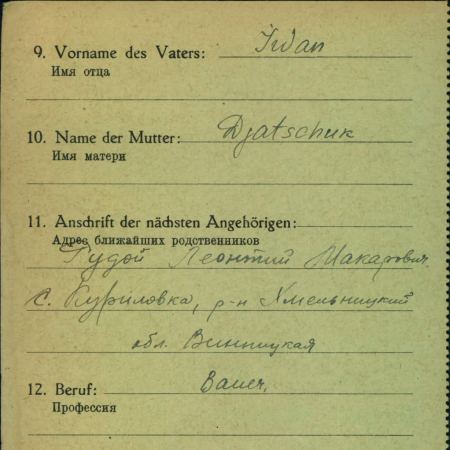 9. Vorname des Vaters: Iwan
Имя отца
10. Name der Mutter: Djatschuk
Имя матери
11. Anschrift der nächsten Angehörigen:
Адрес ближайших родственников
Гудой Леонтий Макарович
с. Куриловка, р-н Хмельницкий
обл. Винницкая
12. Beruf: Bauer,
Профессия